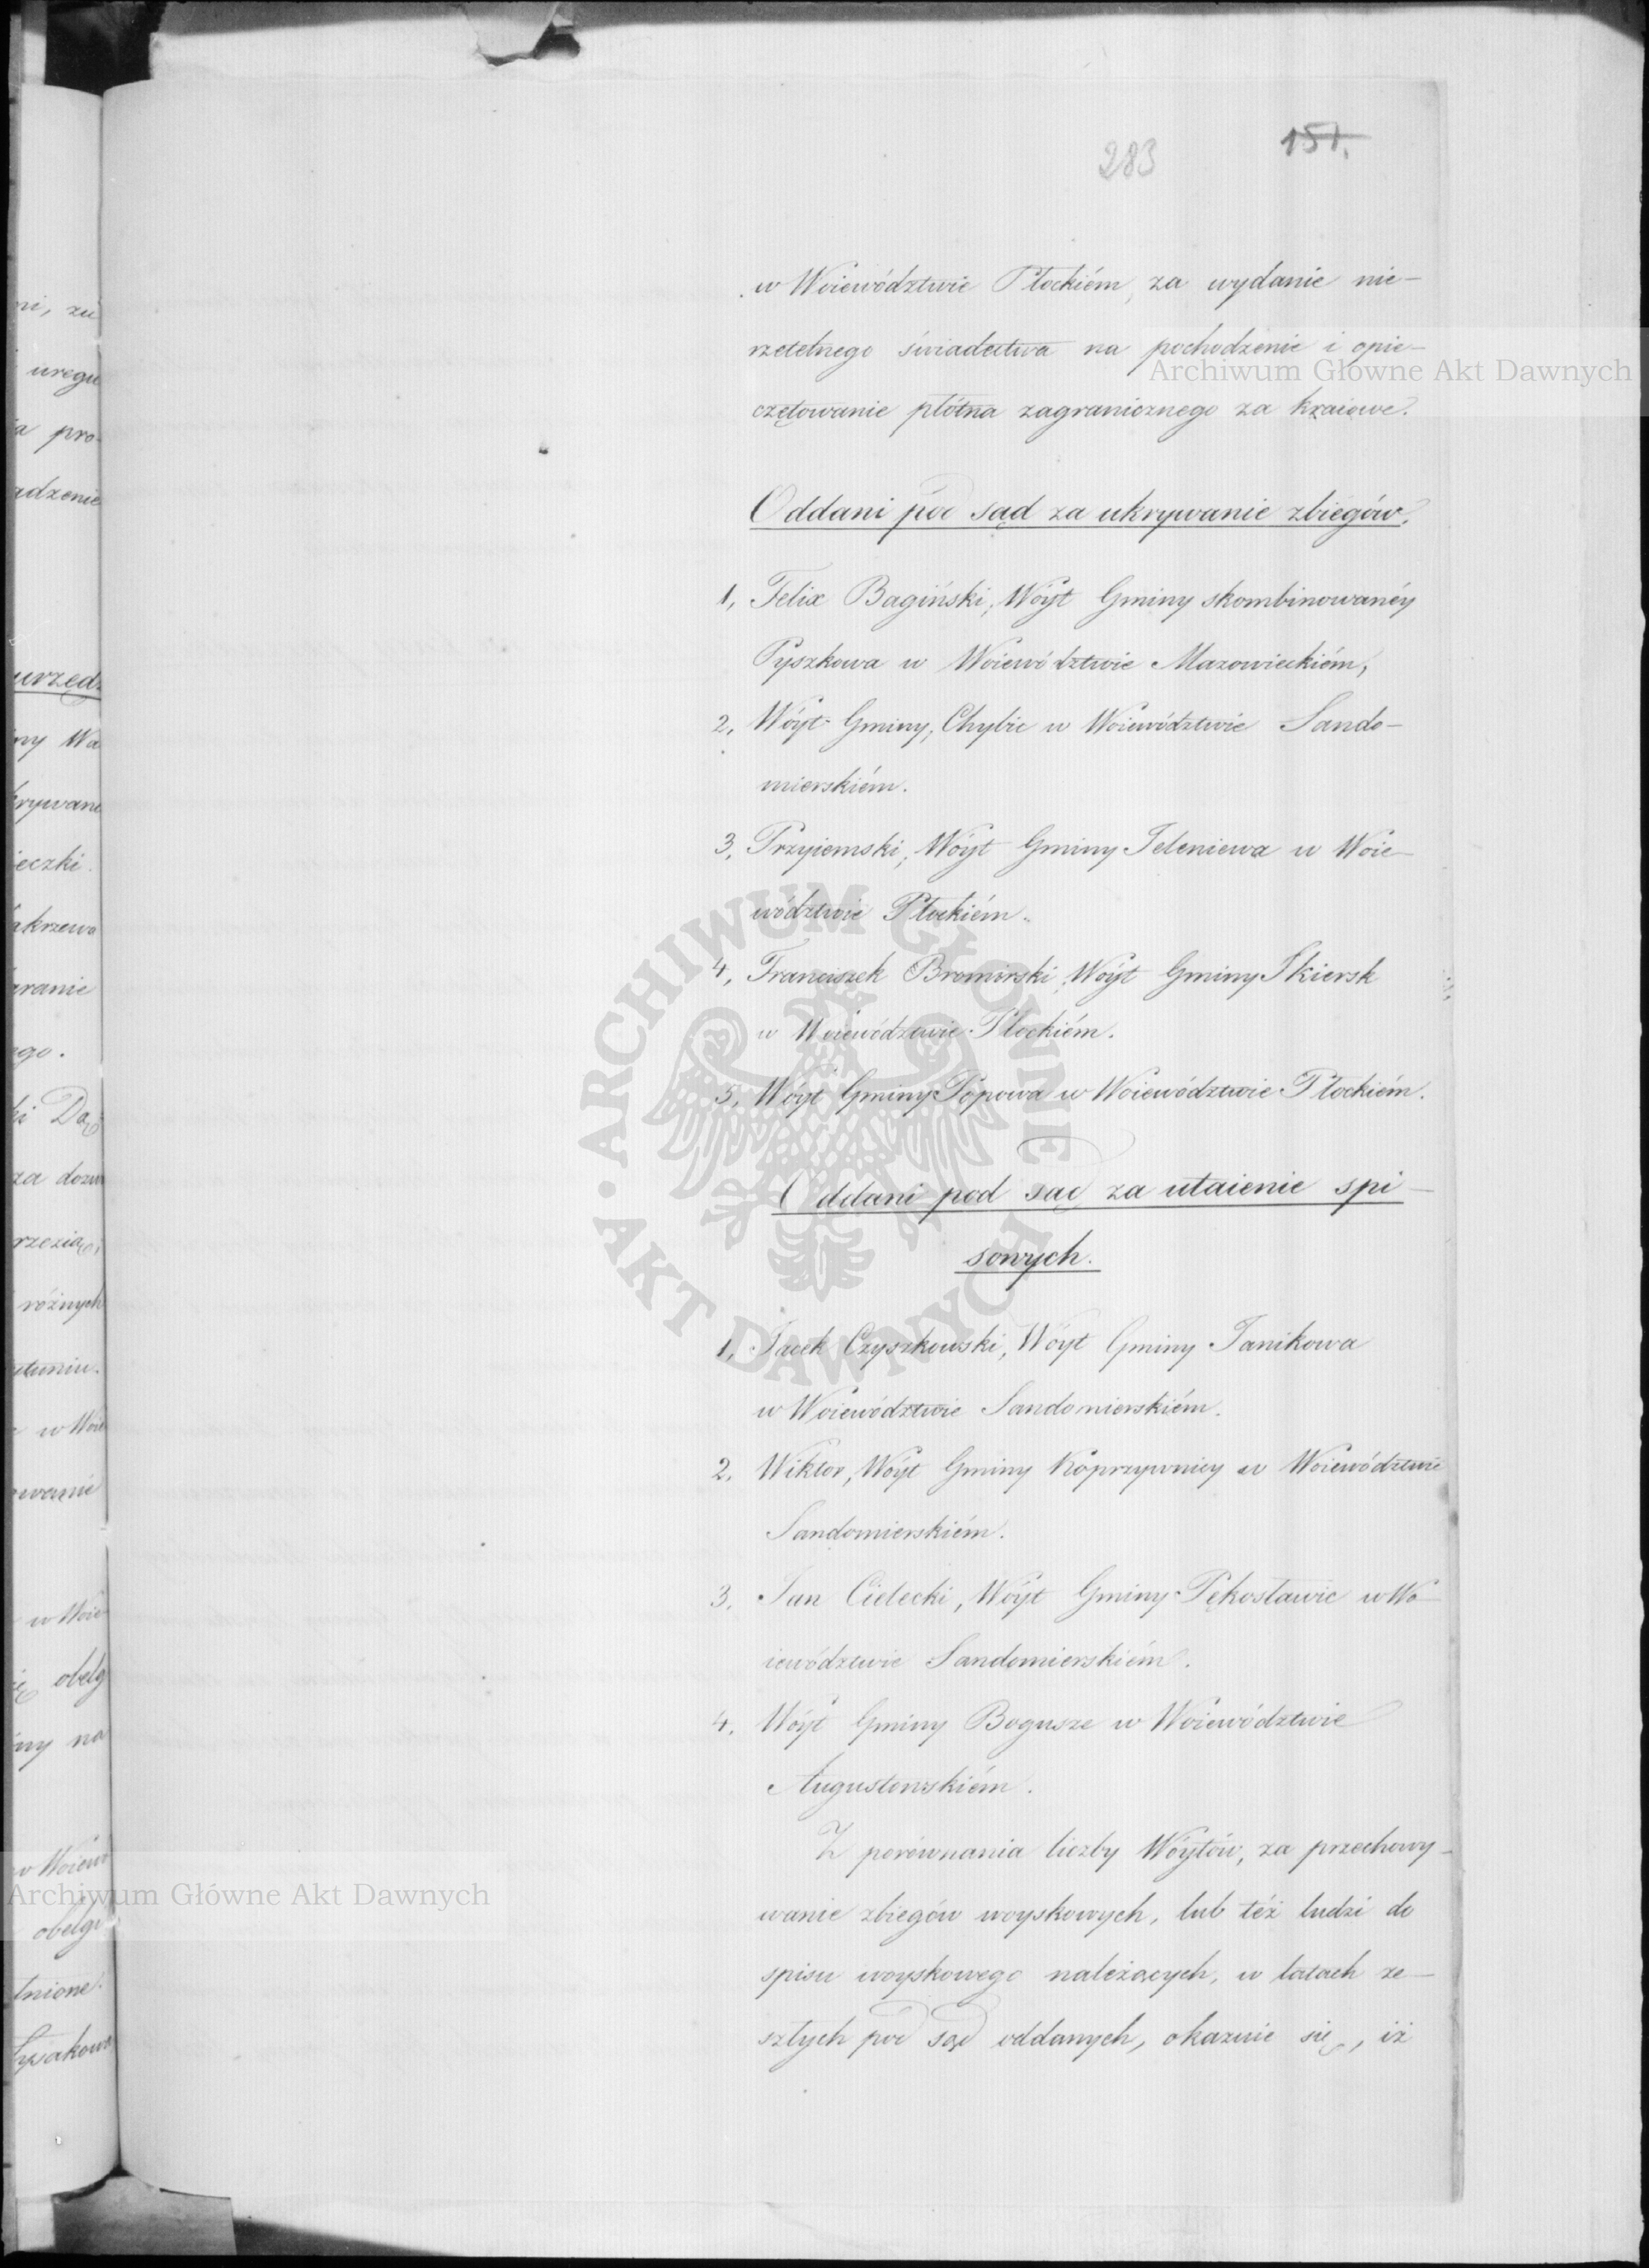 283 151.
w Woiewództwie Płockiém, za wydanie nie-
rzetelnego świadectwa na pochodzenie i opie-
Archiwum Główne Akt Dawnych
czętowanie płótna zagranicznego za kraiowe.
Oddani pod sąd za ukrywanie zbiegów.
1, Felix Bagiński, Wóyt Gminy skombinowanéy
Pyszkowa w Woiewództwie Mazowieckiém,
2, Wóyt Gminy, Chybie w Woiewództwie Sando-
mierskiém.
3, Przyiemski, Wóyt Gminy Jeleniewa w Woie-
wództwie Płockiém.
4, Franciszek Bromirski, Wóyt Gminy Skiersk
w Woiewództwie Płockiém.
5, Wóyt Gminy Popowa w Woiewództwie Płockiém.
ARCHIWUM GŁÓWNE AKT DAWNYCH
Oddani pod sąd za utaienie spi-
sowych.
1, Jacek Czyszkowski, Wóyt Gminy Janikowa
w Woiewództwie Sandomierskiém.
2, Wiktor, Wóyt Gminy Koprzywnicy w Woiewództwie
Sandomierskiém.
3, Jan Cielecki, Wóyt Gminy Pękosławic w Wo-
iewództwie Sandomierskiém.
4, Wóyt Gminy Bogusze w Woiewództwie
Augustowskiém.
Z porównania liczby Wóytów, za przechowy-
wanie zbiegów woyskowych, lub też ludzi do
Archiwum Główne Akt Dawnych
spisu woyskowego należących, w latach ze-
szłych pod sąd oddanych, okazuie się, iż